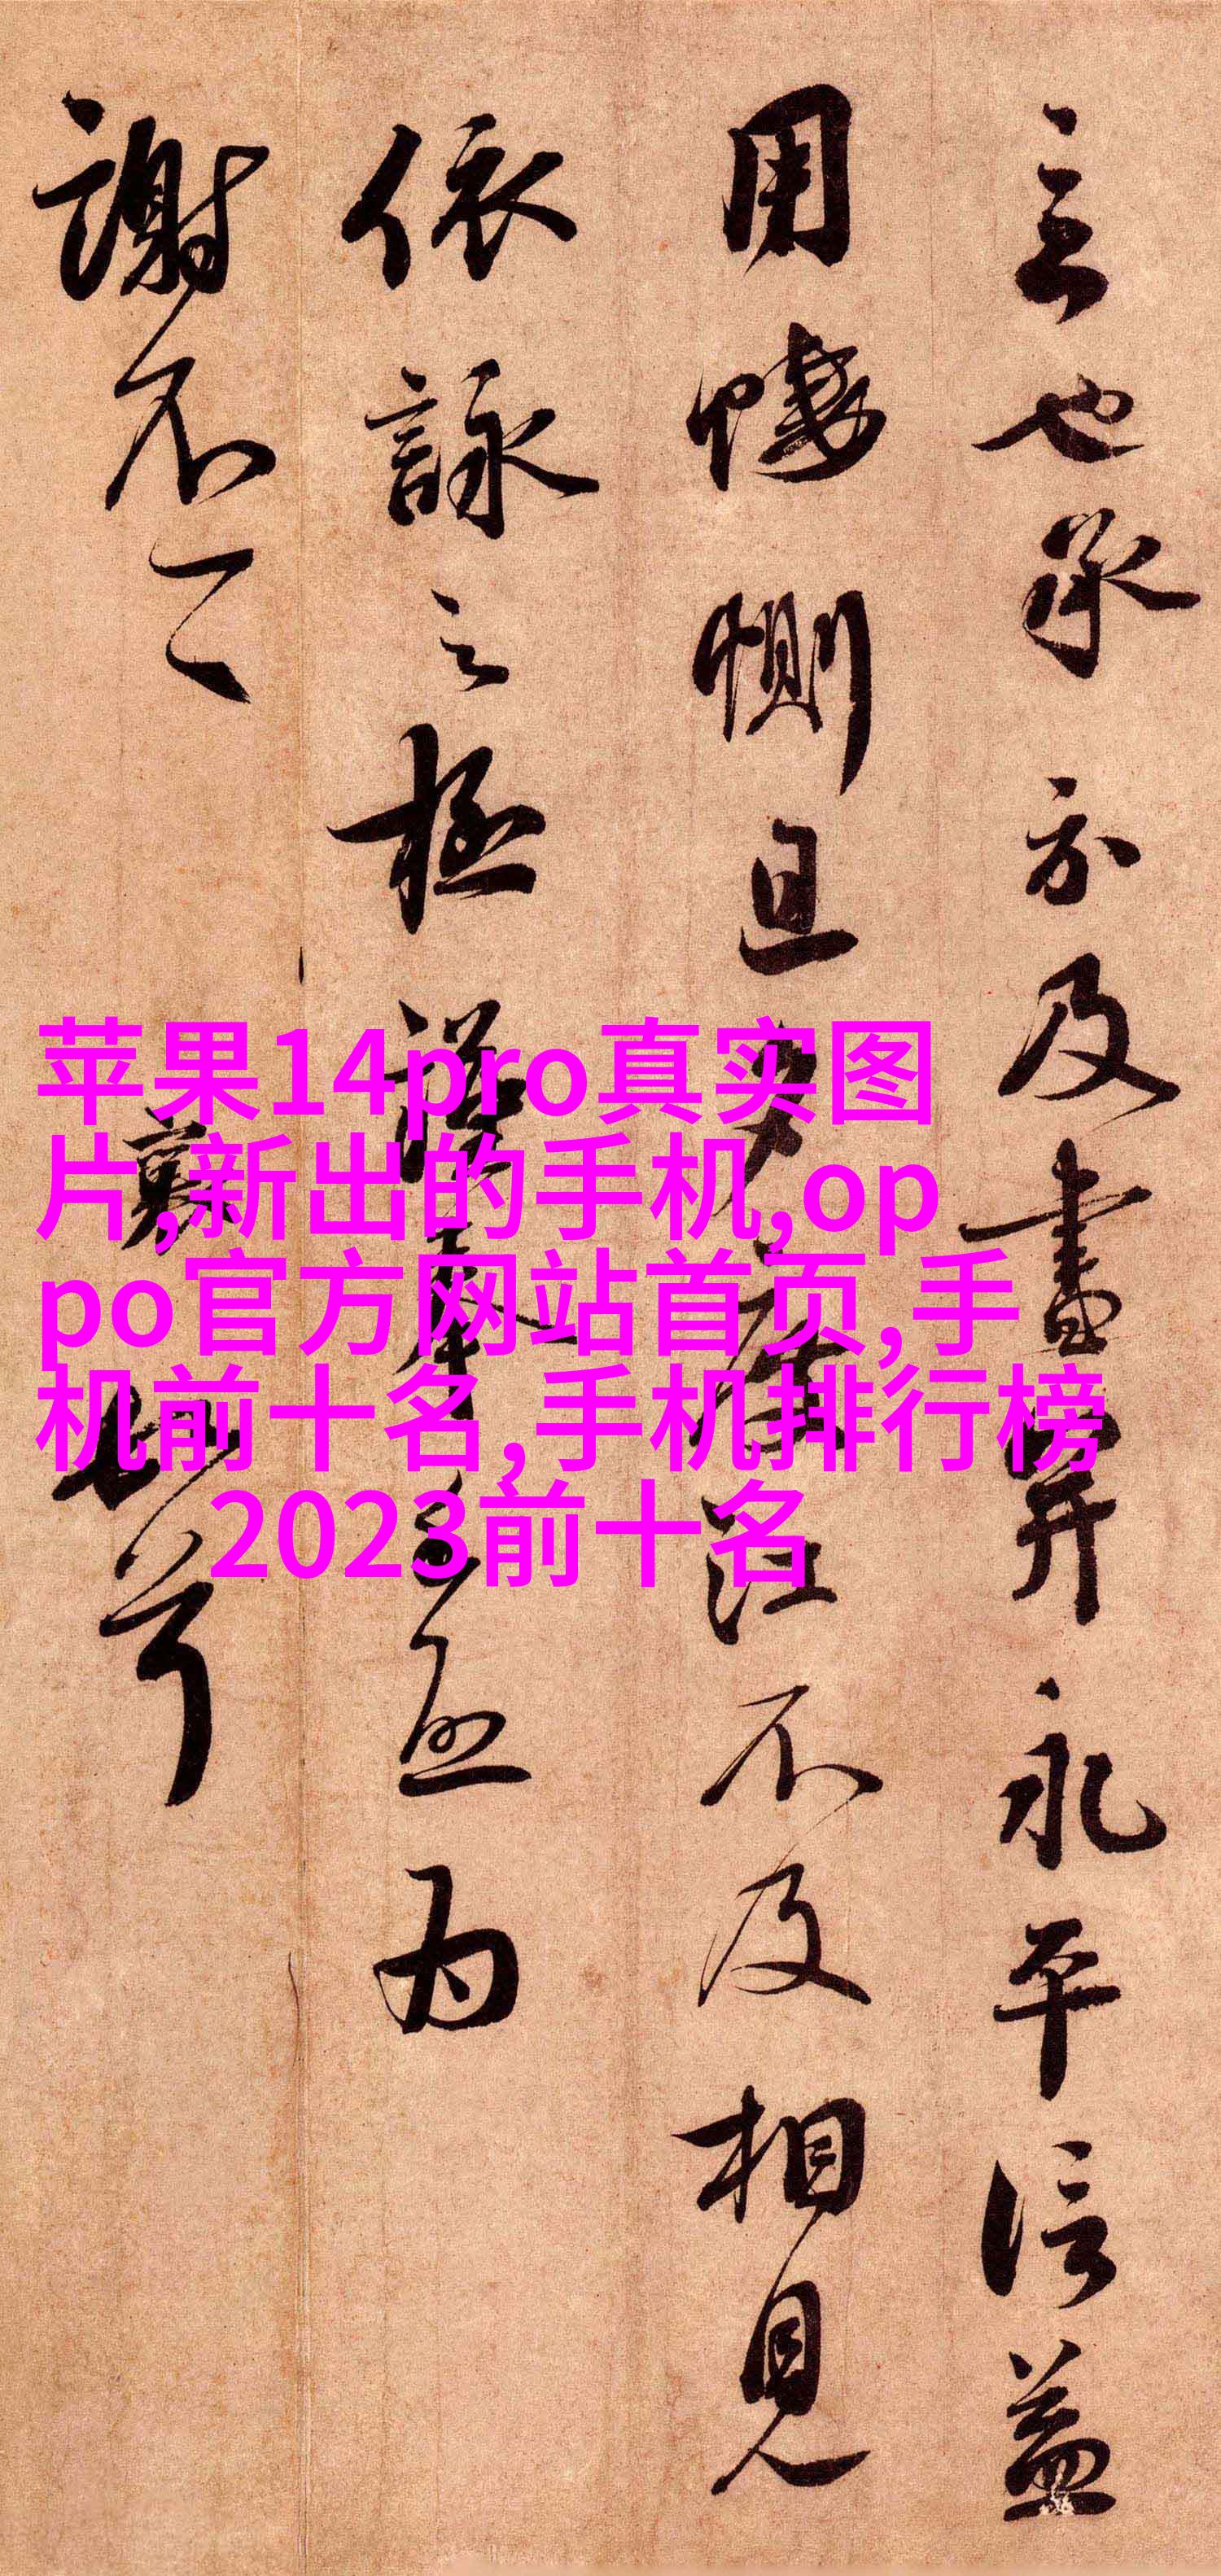 言也承示及畫
并永平信益
用悽惻且夕
不及相見
依詠之極謹
為
謝不一一
襄
苹果14pro真实图
片,新出的手机,op
po官方网站首页,手
机前十名,手机排行榜
2023前十名